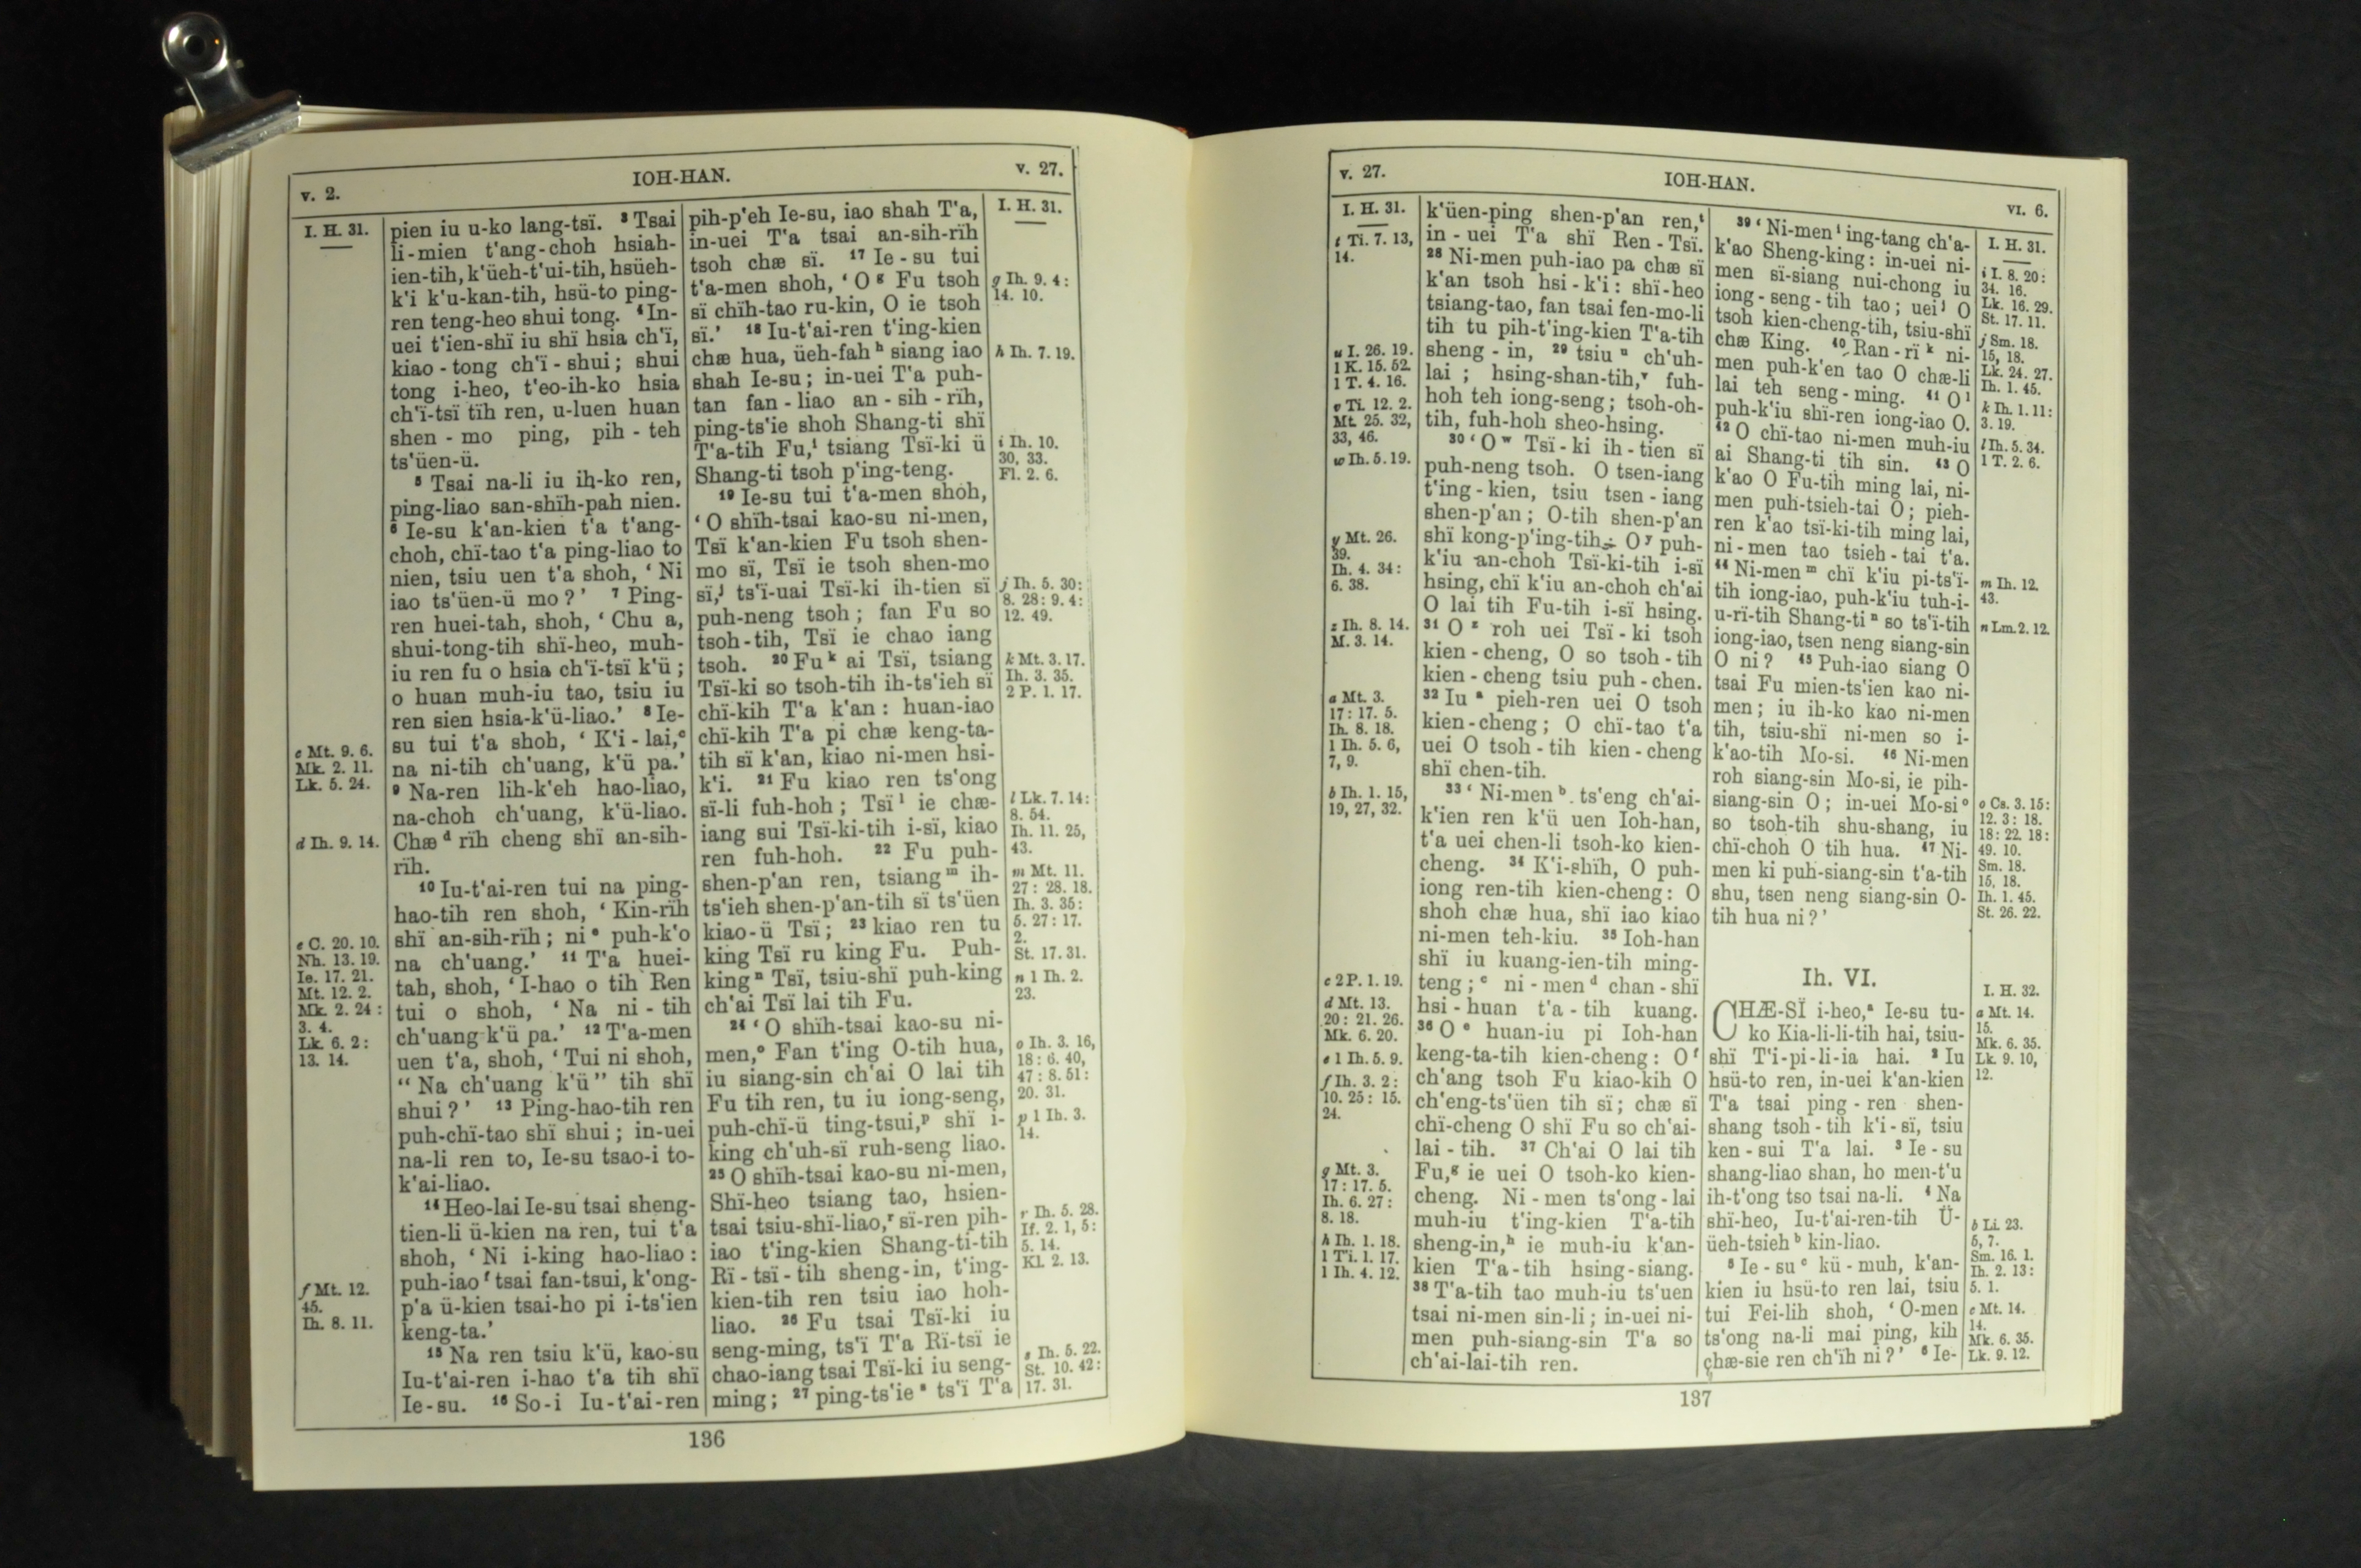 v. 2.
IOH-HAN.
v. 27.
I. H. 31.
pien iu u-ko lang-tsï. ³ Tsai
li-mien t'ang-choh hsiah-
ien-tih, k'üeh-t'ui-tih, hsüeh-
k'i k'u-kan-tih, hsü-to ping-
ren teng-heo shui tong. ⁴ In-
uei t'ien-shï iu shï hsia ch'ï,
kiao-tong ch'ï-shui; shui
tong i-heo, t'eo-ih-ko hsia
ch'ï-tsï tïh ren, u-luen huan
shen-mo ping, pih-teh
ts'üen-ü.
⁵ Tsai na-li iu ih-ko ren,
ping-liao san-shïh-pah nien.
⁶ Ie-su k'an-kien t'a t'ang-
choh, chï-tao t'a ping-liao to
nien, tsiu uen t'a shoh, ‘ Ni
iao ts'üen-ü mo?’ ⁷ Ping-
ren huei-tah, shoh, ‘ Chu a,
shui-tong-tih shï-heo, muh-
iu ren fu o hsia ch'ï-tsï k'ü;
o huan muh-iu tao, tsiu iu
ren sien hsia-k'ü-liao.’ ⁸ Ie-
su tui t'a shoh, ‘ K'i-lai,ᶜ
na ni-tih ch'uang, k'ü pa.’
⁹ Na-ren lih-k'eh hao-liao,
na-choh ch'uang, k'ü-liao.
Chæ ᵈ rïh cheng shï an-sih-
rïh.
¹⁰ Iu-t'ai-ren tui na ping-
hao-tih ren shoh, ‘ Kin-rïh
shï an-sih-rïh; ni ᵉ puh-k'o
na ch'uang.’ ¹¹ T'a huei-
tah, shoh, ‘ I-hao o tih Ren
tui o shoh, ‘ Na ni-tih
ch'uang k'ü pa.’ ¹² T'a-men
uen t'a, shoh, ‘ Tui ni shoh,
“ Na ch'uang k'ü ” tih shï
shui?’ ¹³ Ping-hao-tih ren
puh-chï-tao shï shui; in-uei
na-li ren to, Ie-su tsao-i to-
k'ai-liao.
¹⁴ Heo-lai Ie-su tsai sheng-
tien-li ü-kien na ren, tui t'a
shoh, ‘ Ni i-king hao-liao:
puh-iao ᶠ tsai fan-tsui, k'ong-
p'a ü-kien tsai-ho pi i-ts'ien
keng-ta.’
¹⁵ Na ren tsiu k'ü, kao-su
Iu-t'ai-ren i-hao t'a tih shï
Ie-su. ¹⁶ So-i Iu-t'ai-ren
c Mt. 9. 6.
Mk. 2. 11.
Lk. 5. 24.
d Ih. 9. 14.
e C. 20. 10.
Nh. 13. 19.
Ie. 17. 21.
Mt. 12. 2.
Mk. 2. 24:
3. 4.
Lk. 6. 2:
13. 14.
f Mt. 12.
45.
Ih. 8. 11.
pih-p'eh Ie-su, iao shah T'a,
in-uei T'a tsai an-sih-rïh
tsoh chæ sï. ¹⁷ Ie-su tui
t'a-men shoh, ‘ O ᵍ Fu tsoh
sï chïh-tao ru-kin, O ie tsoh
sï.’ ¹⁸ Iu-t'ai-ren t'ing-kien
chæ hua, üeh-fah ʰ siang iao
shah Ie-su; in-uei T'a puh-
tan fan-liao an-sih-rïh,
ping-ts'ie shoh Shang-ti shï
T'a-tih Fu,ⁱ tsiang Tsï-ki ü
Shang-ti tsoh p'ing-teng.
¹⁹ Ie-su tui t'a-men shoh,
‘ O shïh-tsai kao-su ni-men,
Tsï k'an-kien Fu tsoh shen-
mo sï, Tsï ie tsoh shen-mo
sï,ʲ ts'ï-uai Tsï-ki ih-tien sï
puh-neng tsoh; fan Fu so
tsoh-tih, Tsï ie chao iang
tsoh. ²⁰ Fu ᵏ ai Tsï, tsiang
Tsï-ki so tsoh-tih ih-ts'ieh sï
chï-kih T'a k'an: huan-iao
chï-kih T'a pi chæ keng-ta-
tih sï k'an, kiao ni-men hsi-
k'i. ²¹ Fu kiao ren ts'ong
sï-li fuh-hoh; Tsï ˡ ie chæ-
iang sui Tsï-ki-tih i-sï, kiao
ren fuh-hoh. ²² Fu puh-
shen-p'an ren, tsiang ᵐ ih-
ts'ieh shen-p'an-tih sï ts'üen
kiao-ü Tsï; ²³ kiao ren tu
king Tsï ru king Fu. Puh-
king ⁿ Tsï, tsiu-shï puh-king
ch'ai Tsï lai tih Fu.
²⁴ ‘ O shïh-tsai kao-su ni-
men,ᵒ Fan t'ing O-tih hua,
iu siang-sin ch'ai O lai tih
Fu tih ren, tu iu iong-seng,
puh-chï-ü ting-tsui,ᵖ shï i-
king ch'uh-sï ruh-seng liao.
²⁵ O shïh-tsai kao-su ni-men,
Shï-heo tsiang tao, hsien-
tsai tsiu-shï-liao,ʳ sï-ren pih-
iao t'ing-kien Shang-ti-tih
Rï-tsï-tih sheng-in, t'ing-
kien-tih ren tsiu iao hoh-
liao. ²⁶ Fu tsai Tsï-ki iu
seng-ming, ts'ï T'a Rï-tsï ie
chao-iang tsai Tsï-ki iu seng-
ming; ²⁷ ping-ts'ie ˢ ts'ï T'a
I. H. 31.
g Ih. 9. 4:
14. 10.
h Ih. 7. 19.
i Ih. 10.
30, 33.
Fl. 2. 6.
j Ih. 5. 30:
8. 28: 9. 4:
12. 49.
k Mt. 3. 17.
Ih. 3. 35.
2 P. 1. 17.
l Lk. 7. 14:
8. 54.
Ih. 11. 25,
43.
m Mt. 11.
27: 28. 18.
Ih. 3. 35:
5. 27: 17.
2.
St. 17. 31.
n 1 Ih. 2.
23.
o Ih. 3. 16,
18: 6. 40,
47: 8. 51:
20. 31.
p 1 Ih. 3.
14.
r Ih. 5. 28.
If. 2. 1, 5:
5. 14.
Kl. 2. 13.
s Ih. 5. 22.
St. 10. 42:
17. 31.
136
v. 27.
IOH-HAN.
VI. 6.
I. H. 31.
t Ti. 7. 13,
14.
u I. 26. 19.
1 K. 15. 52.
1 T. 4. 16.
v Ti. 12. 2.
Mt. 25. 32,
33, 46.
w Ih. 5. 19.
y Mt. 26.
39.
Ih. 4. 34:
6. 38.
z Ih. 8. 14.
M. 3. 14.
a Mt. 3.
17: 17. 5.
Ih. 8. 18.
1 Ih. 5. 6,
7, 9.
b Ih. 1. 15,
19, 27, 32.
c 2 P. 1. 19.
d Mt. 13.
20: 21. 26.
Mk. 6. 20.
e 1 Ih. 5. 9.
f Ih. 3. 2:
10. 25: 15.
24.
g Mt. 3.
17: 17. 5.
Ih. 6. 27:
8. 18.
h Ih. 1. 18.
1 Ti. 1. 17.
1 Ih. 4. 12.
k'üen-ping shen-p'an ren,ᵗ
in-uei T'a shï Ren-Tsï.
²⁸ Ni-men puh-iao pa chæ sï
k'an tsoh hsi-k'i: shï-heo
tsiang-tao, fan tsai fen-mo-li
tih tu pih-t'ing-kien T'a-tih
sheng-in, ²⁹ tsiu ᵘ ch'uh-
lai; hsing-shan-tih,ᵛ fuh-
hoh teh iong-seng; tsoh-oh-
tih, fuh-hoh sheo-hsing.
³⁰ ‘ O ʷ Tsï-ki ih-tien sï
puh-neng tsoh. O tsen-iang
t'ing-kien, tsiu tsen-iang
shen-p'an; O-tih shen-p'an
shï kong-p'ing-tih; O ʸ puh-
k'iu an-choh Tsï-ki-tih i-sï
hsing, chï k'iu an-choh ch'ai
O lai tih Fu-tih i-sï hsing.
³¹ O ᶻ roh uei Tsï-ki tsoh
kien-cheng, O so tsoh-tih
kien-cheng tsiu puh-chen.
³² Iu ᵃ pieh-ren uei O tsoh
kien-cheng; O chï-tao t'a
uei O tsoh-tih kien-cheng
shï chen-tih.
³³ ‘ Ni-men ᵇ ts'eng ch'ai-
k'ien ren k'ü uen Ioh-han,
t'a uei chen-li tsoh-ko kien-
cheng. ³⁴ K'i-shïh, O puh-
iong ren-tih kien-cheng: O
shoh chæ hua, shï iao kiao
ni-men teh-kiu. ³⁵ Ioh-han
shï iu kuang-ien-tih ming-
teng;ᶜ ni-men ᵈ chan-shï
hsi-huan t'a-tih kuang.
³⁶ O ᵉ huan-iu pi Ioh-han
keng-ta-tih kien-cheng: O ᶠ
ch'ang tsoh Fu kiao-kih O
ch'eng-ts'üen tih sï; chæ sï
chï-cheng O shï Fu so ch'ai-
lai-tih. ³⁷ Ch'ai O lai tih
Fu,ᵍ ie uei O tsoh-ko kien-
cheng. Ni-men ts'ong-lai
muh-iu t'ing-kien T'a-tih
sheng-in,ʰ ie muh-iu k'an-
kien T'a-tih hsing-siang.
³⁸ T'a-tih tao muh-iu ts'uen
tsai ni-men sin-li; in-uei ni-
men puh-siang-sin T'a so
ch'ai-lai-tih ren.
³⁹ ‘ Ni-men ⁱ ing-tang ch'a-
k'ao Sheng-king: in-uei ni-
men sï-siang nui-chong iu
iong-seng-tih tao; uei ʲ O
tsoh kien-cheng-tih, tsiu-shï
chæ King. ⁴⁰ Ran-rï ᵏ ni-
men puh-k'en tao O chæ-li
lai teh seng-ming. ⁴¹ O ˡ
puh-k'iu shï-ren iong-iao O.
⁴² O chï-tao ni-men muh-iu
ai Shang-ti tih sin. ⁴³ O
k'ao O Fu-tih ming lai, ni-
men puh-tsieh-tai O; pieh-
ren k'ao tsï-ki-tih ming lai,
ni-men tao tsieh-tai t'a.
⁴⁴ Ni-men ᵐ chï k'iu pi-ts'ï-
tih iong-iao, puh-k'iu tuh-i-
u-rï-tih Shang-ti ⁿ so ts'ï-tih
iong-iao, tsen neng siang-sin
O ni? ⁴⁵ Puh-iao siang O
tsai Fu mien-ts'ien kao ni-
men; iu ih-ko kao ni-men
tih, tsiu-shï ni-men so i-
k'ao-tih Mo-si. ⁴⁶ Ni-men
roh siang-sin Mo-si, ie pih-
siang-sin O; in-uei Mo-si ᵒ
so tsoh-tih shu-shang, iu
chï-choh O tih hua. ⁴⁷ Ni-
men ki puh-siang-sin t'a-tih
shu, tsen neng siang-sin O-
tih hua ni?’
Ih. VI.
CHÆ-SÏ i-heo,ᵃ Ie-su tu-
ko Kia-li-li-tih hai, tsiu-
shï T'i-pi-li-ia hai. ² Iu
hsü-to ren, in-uei k'an-kien
T'a tsai ping-ren shen-
shang tsoh-tih k'i-sï, tsiu
ken-sui T'a lai. ³ Ie-su
shang-liao shan, ho men-t'u
ih-t'ong tso tsai na-li. ⁴ Na
shï-heo, Iu-t'ai-ren-tih Ü-
üeh-tsieh ᵇ kin-liao.
⁵ Ie-su ᶜ kü-muh, k'an-
kien iu hsü-to ren lai, tsiu
tui Fei-lih shoh, ‘ O-men
ts'ong na-li mai ping, kih
chæ-sie ren ch'ïh ni?’ ⁶ Ie-
I. H. 31.
i I. 8. 20:
34. 16.
Lk. 16. 29.
St. 17. 11.
j Sm. 18.
15, 18.
Lk. 24. 27.
Ih. 1. 45.
k Ih. 1. 11:
3. 19.
l Ih. 5. 34.
1 T. 2. 6.
m Ih. 12.
43.
n Lm. 2. 12.
o Cs. 3. 15:
12. 3: 18.
18: 22. 18:
49. 10.
Sm. 18.
15, 18.
Ih. 1. 45.
St. 26. 22.
I. H. 32.
a Mt. 14.
15.
Mk. 6. 35.
Lk. 9. 10,
12.
b Li. 23.
5, 7.
Sm. 16. 1.
Ih. 2. 13:
5. 1.
c Mt. 14.
14.
Mk. 6. 35.
Lk. 9. 12.
137